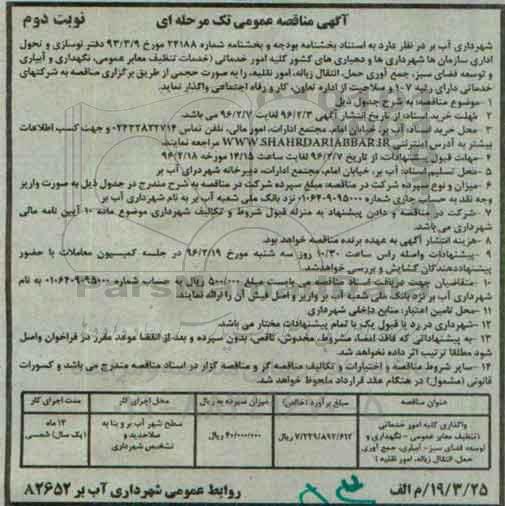 آگهی مناقصه عمومی تک مرحله ای
نوبت دوم
شهرداری آب بر در نظر دارد به استناد بخشنامه بودجه و بخشنامه شماره ۲۴۱۸۸ مورخ ۹۳/۳/۹ دفتر نوسازی و تحول
اداری سازمان ها شهرداری ها و دهیاری های کشور کلیه امور خدماتی (خدمات تنظیف معابر عمومی، نگهداری و آبیاری
و توسعه فضای سبز، جمع آوری حمل، انتقال زباله، امور نقلیه، را به صورت حجمی از طریق برگزاری مناقصه به شرکتهای
خدماتی دارای رتبه ۷-۱ و صلاحیت از اداره تعاون، کار و رفاه اجتماعی واگذار نماید.
۱-موضوع مناقصه: به شرح جدول ذیل
۲- مهلت خرید اسناد: از تاریخ انتشار آگهی ۹۶/۲/۳ لغایت ۹۶/۲/۷ می باشد.
۳- محل خرید اسناد: آب بر، خیابان امام، مجتمع ادارات، امور مالی، تلفن تماس ۰۲۴۳۲۸۲۲۷۱۴ و جهت کسب اطلاعات
بیشتر به آدرس اینترنتی WWW.SHAHRDARIABBAR.IR مراجعه نمایند.
۴-مهلت قبول پیشنهادات: از تاریخ ۹۶/۲/۷ لغایت ساعت ۱۴/۱۵ مورخه ۹۶/۲/۱۸
۵-محل تسلیم اسناد: آب بر، خیابان امام، مجتمع ادارات، دبیرخانه شهرداری آب بر
۶- میزان و نوع سپرده شرکت در مناقصه: مبلغ سپرده شرکت در مناقصه به شرح مندرج در جدول ذیل به صورت واریز
وجه نقد به حساب جاری شماره ۰۱۰۶۴۰۹۰۹۵۰۰۰ نزد بانک ملی شعبه آب بر به نام شهرداری آب بر
۷ -شرکت در مناقصه و دادن پیشنهاد به منزله قبول شروط و تکالیف شهرداری موضوع ماده ۱۰ آیین نامه مالی
شهرداری می باشد.
۸ -هزینه انتشار آگهی به عهده برنده مناقصه خواهد بود.
۹ -پیشنهادات واصله راس ساعت ۱۰/۳۰ روز سه شنبه مورخ ۹۶/۲/۱۹ در جلسه کمیسیون معاملات با حضور
پیشنهاددهندگان گشایش و بررسی خواهدشد.
۱۰ -متقاضیان جهت دریافت اسناد مناقصه می بایست مبلغ ۵۰۰/۰۰۰ ریال به حساب شماره ۰۱۰۶۴۰۹۰۹۵۰۰۰ به نام
شهرداری آب بر نزد بانک ملی شعبه آب بر واریز و اصل فیش آن را ارائه نمایند.
۱۱ -محل تامین اعتبار: منابع داخلی شهرداری
۱۲ -شهرداری در رد یا قبول یک یا تمام پیشنهادات مختار می باشد.
۱۳ -به پیشنهاداتی که فاقد امضا، مشروط، مخدوش، ناقص، بدون سپرده و بعد از انقضا موعد مقرر در فراخوان واصل
شود مطلقا ترتیب اثر داده نخواهد شد.
۱۴-سایر شروط مناقصه و اختیارات و تکالیف مناقصه گر و مناقصه گزار در اسناد مناقصه مندرج می باشد و کسورات
قانونی (مشمول) در هنگام عقد قرارداد ملحوظ خواهد شد.
عنوان مناقصه
مبلغ برآورد (خالص)
میزان سپرده به ریال
محل اجرای کار
مدت اجرای کار
واگذاری کلیه امور خدماتی
(تنظیف معابر عمومی - نگهداری و
توسعه فضای سبز - آبیاری، جمع آوری
حمل، انتقال زباله، امور نقلیه)
۷/۲۲۹/۸۹۲/۶۱۲ ریال
۴۰/۰۰۰/۰۰۰ ریال
سطح شهر آب بر و بنا به
صلاحدید و
تشخیص شهرداری
۱۲ ماه
(یک سال) شمسی
۱۹/۳/۲۵/م الف
روابط عمومی شهرداری آب بر ۸۲۶۵۲